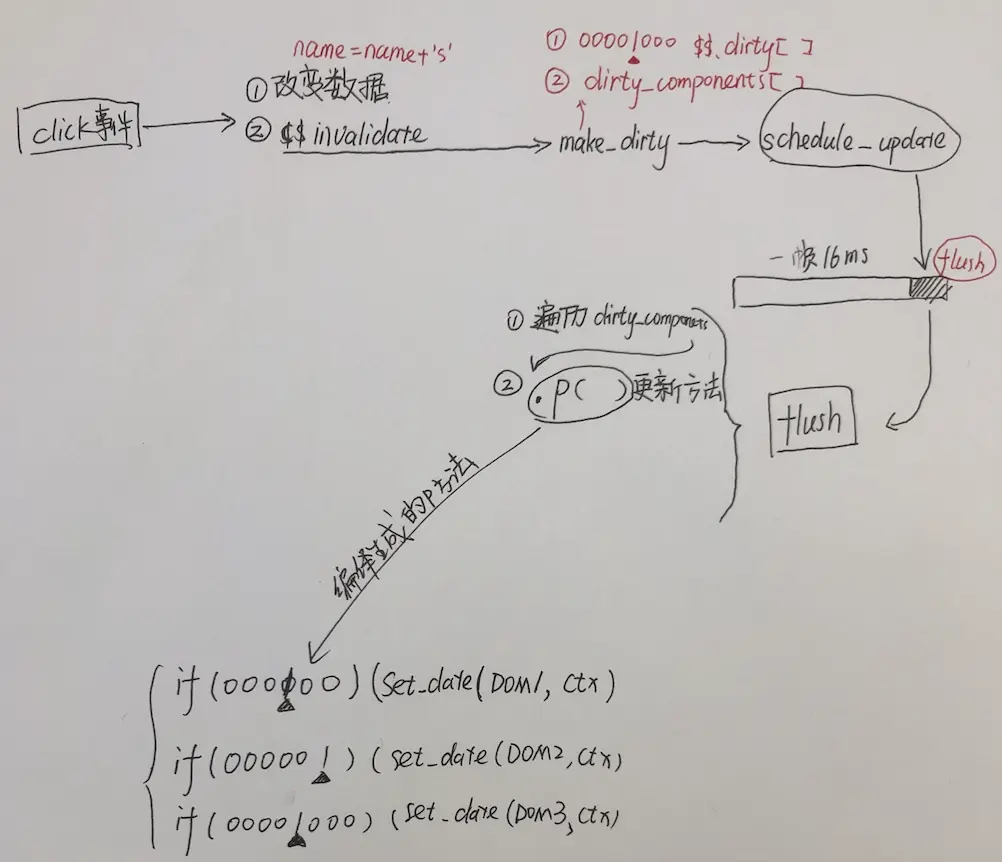 name=name+'s'
① 00001000 $$.dirty[ ]
① 改变数据
② dirty_components[ ]
click事件
② $$invalidate
make_dirty
schedule_update
一帧16ms
flush
① 遍历 dirty_componets
② .p( ) 更新方法
flush
编译生成的p方法
if(000000)(set_date(DOM1, ctx)
if(000001)(set_date(DOM2,ctx)
if(00001000)(set_date(DOM3,ctx)